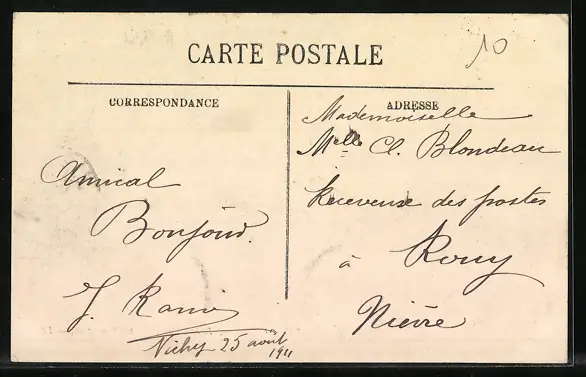 10
CARTE POSTALE
CORRESPONDANCE
Amical
Bonjour.
J.
Vichy 25 août
1911
ADRESSE
Mademoiselle
Melle Cl. Blondeau
Receveuse des postes
à Rouy
Nièvre